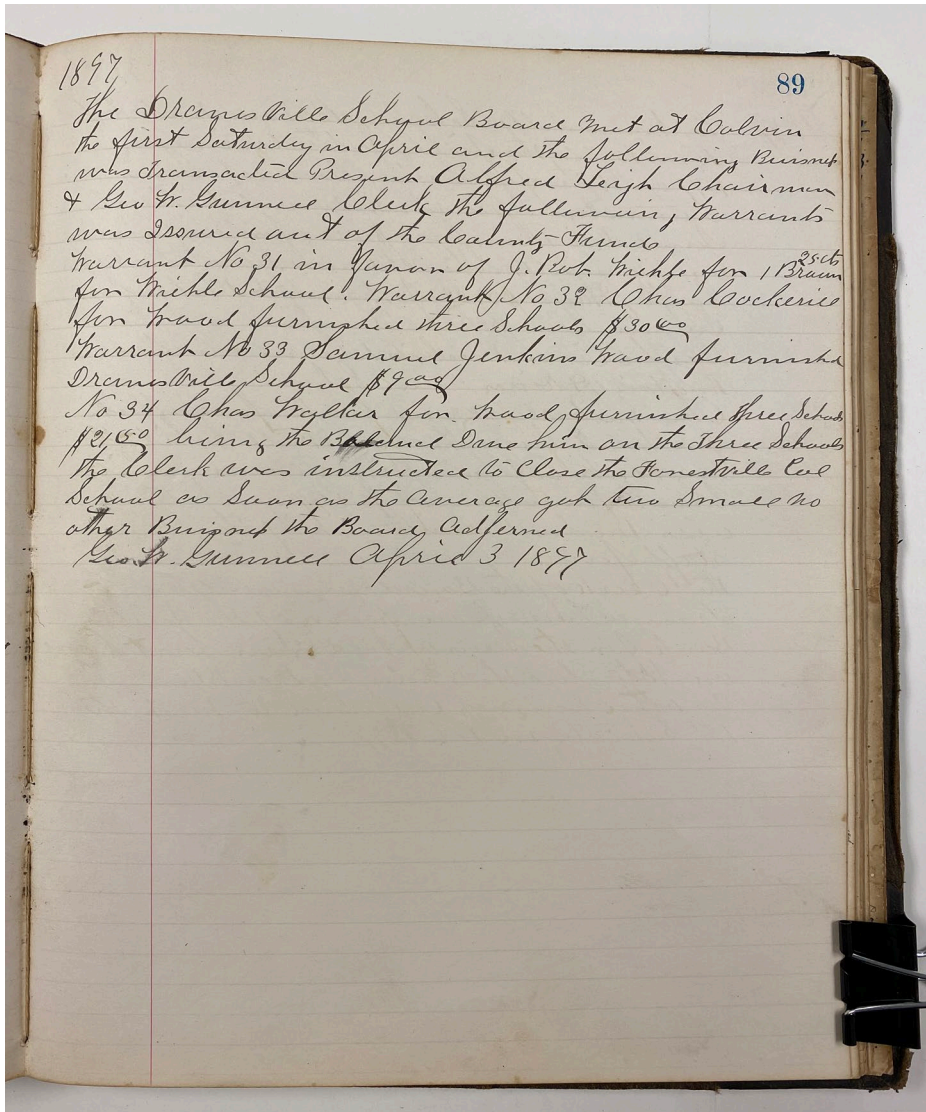 1897
89
The Dranesville School Board met at Colvin
the first Saturday in April and the following Buisness
was Transacted Present Alfred Leigh Chairman
& Geo W. Gunnell Clerk the following Warrants
was Issured out of the County Funds
25cts
Warrant No 31 in favor of J. Rob. Wiehle for 1 Broom
for Wiehle School. Warrant No 32 Chas Cockerill
for Wood furnished three Schools $30.00
Warrant No 33 Samuel Jenkins Wood furnished
Dranesville School $9.00
No 34 Chas Walker for Wood furnished three Schools
$21.50 being the Balance Due him on the Three Schools
the Clerk was instructed to Close the Forestville Col
School as Soon as the average got two Small no
other Buisness the Board Adferned
Geo W. Gunnell April 3 1897